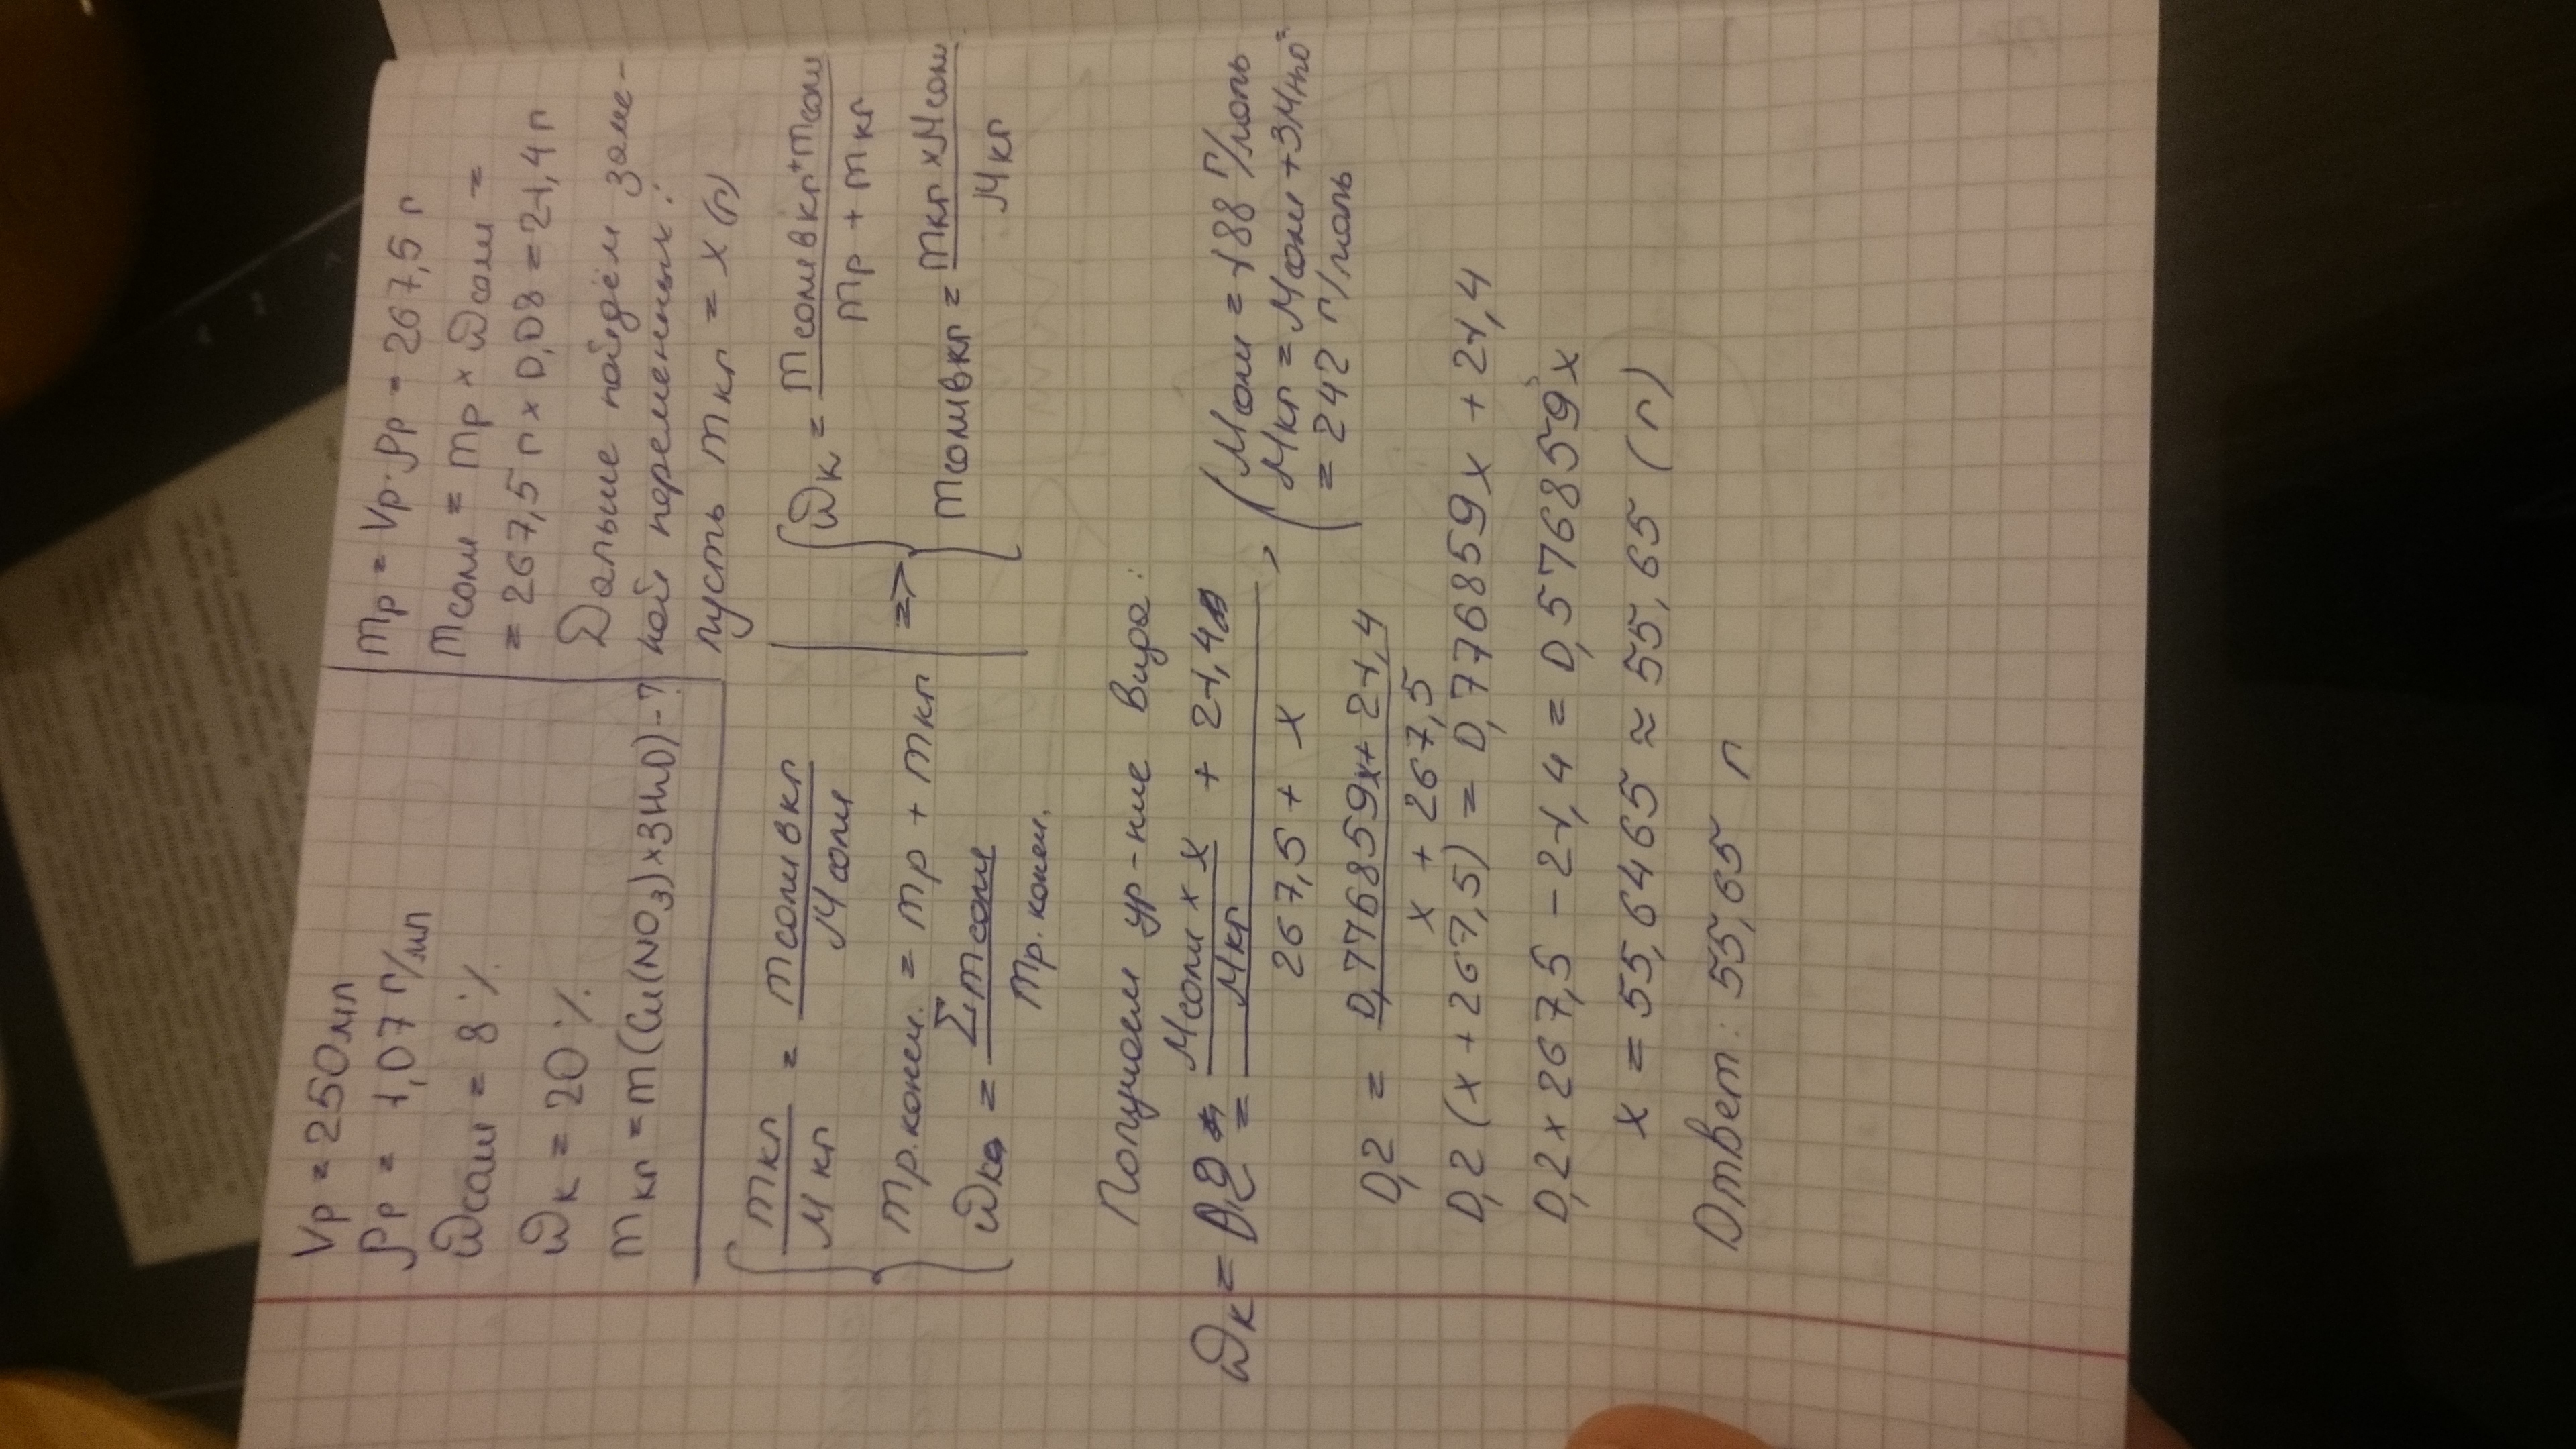 Vр = 250мл
ρр = 1,07 г/мл
ωсоли = 8%
ωк = 20%
mкг = m(Cu(NO3)×3H2O)-?
mр = Vр·ρр = 267,5 г
mсоли = mр × ωсоли =
= 267,5 г × 0,08 = 21,4 г
Дальше пойдём заме-
ной переменных:
пусть mкг = x (г)
mкг/Mкг = mсоли в кг/Mсоли
mр.конеч. = mр + mкг
ωк = Σmсоли/mр.конеч.
=>
ωк = mсоли в кг + mсоли/mр + mкг
mсоли в кг = mкг × Mсоли/Mкг
Получаем ур-ние вида:
ωк = 0,2 = Mсоли × x/Mкг + 21,4/267,5 + x ,
Mсоли = 188 г/моль
Mкг = Mсоли + 3MH2O =
= 242 г/моль
0,2 = 0,7768559x + 21,4/x + 267,5
0,2 (x + 267,5) = 0,7768559x + 21,4
0,2 × 267,5 - 21,4 = 0,5768559x
x = 55,6465 ≈ 55,65 (г)
Ответ: 55,65 г